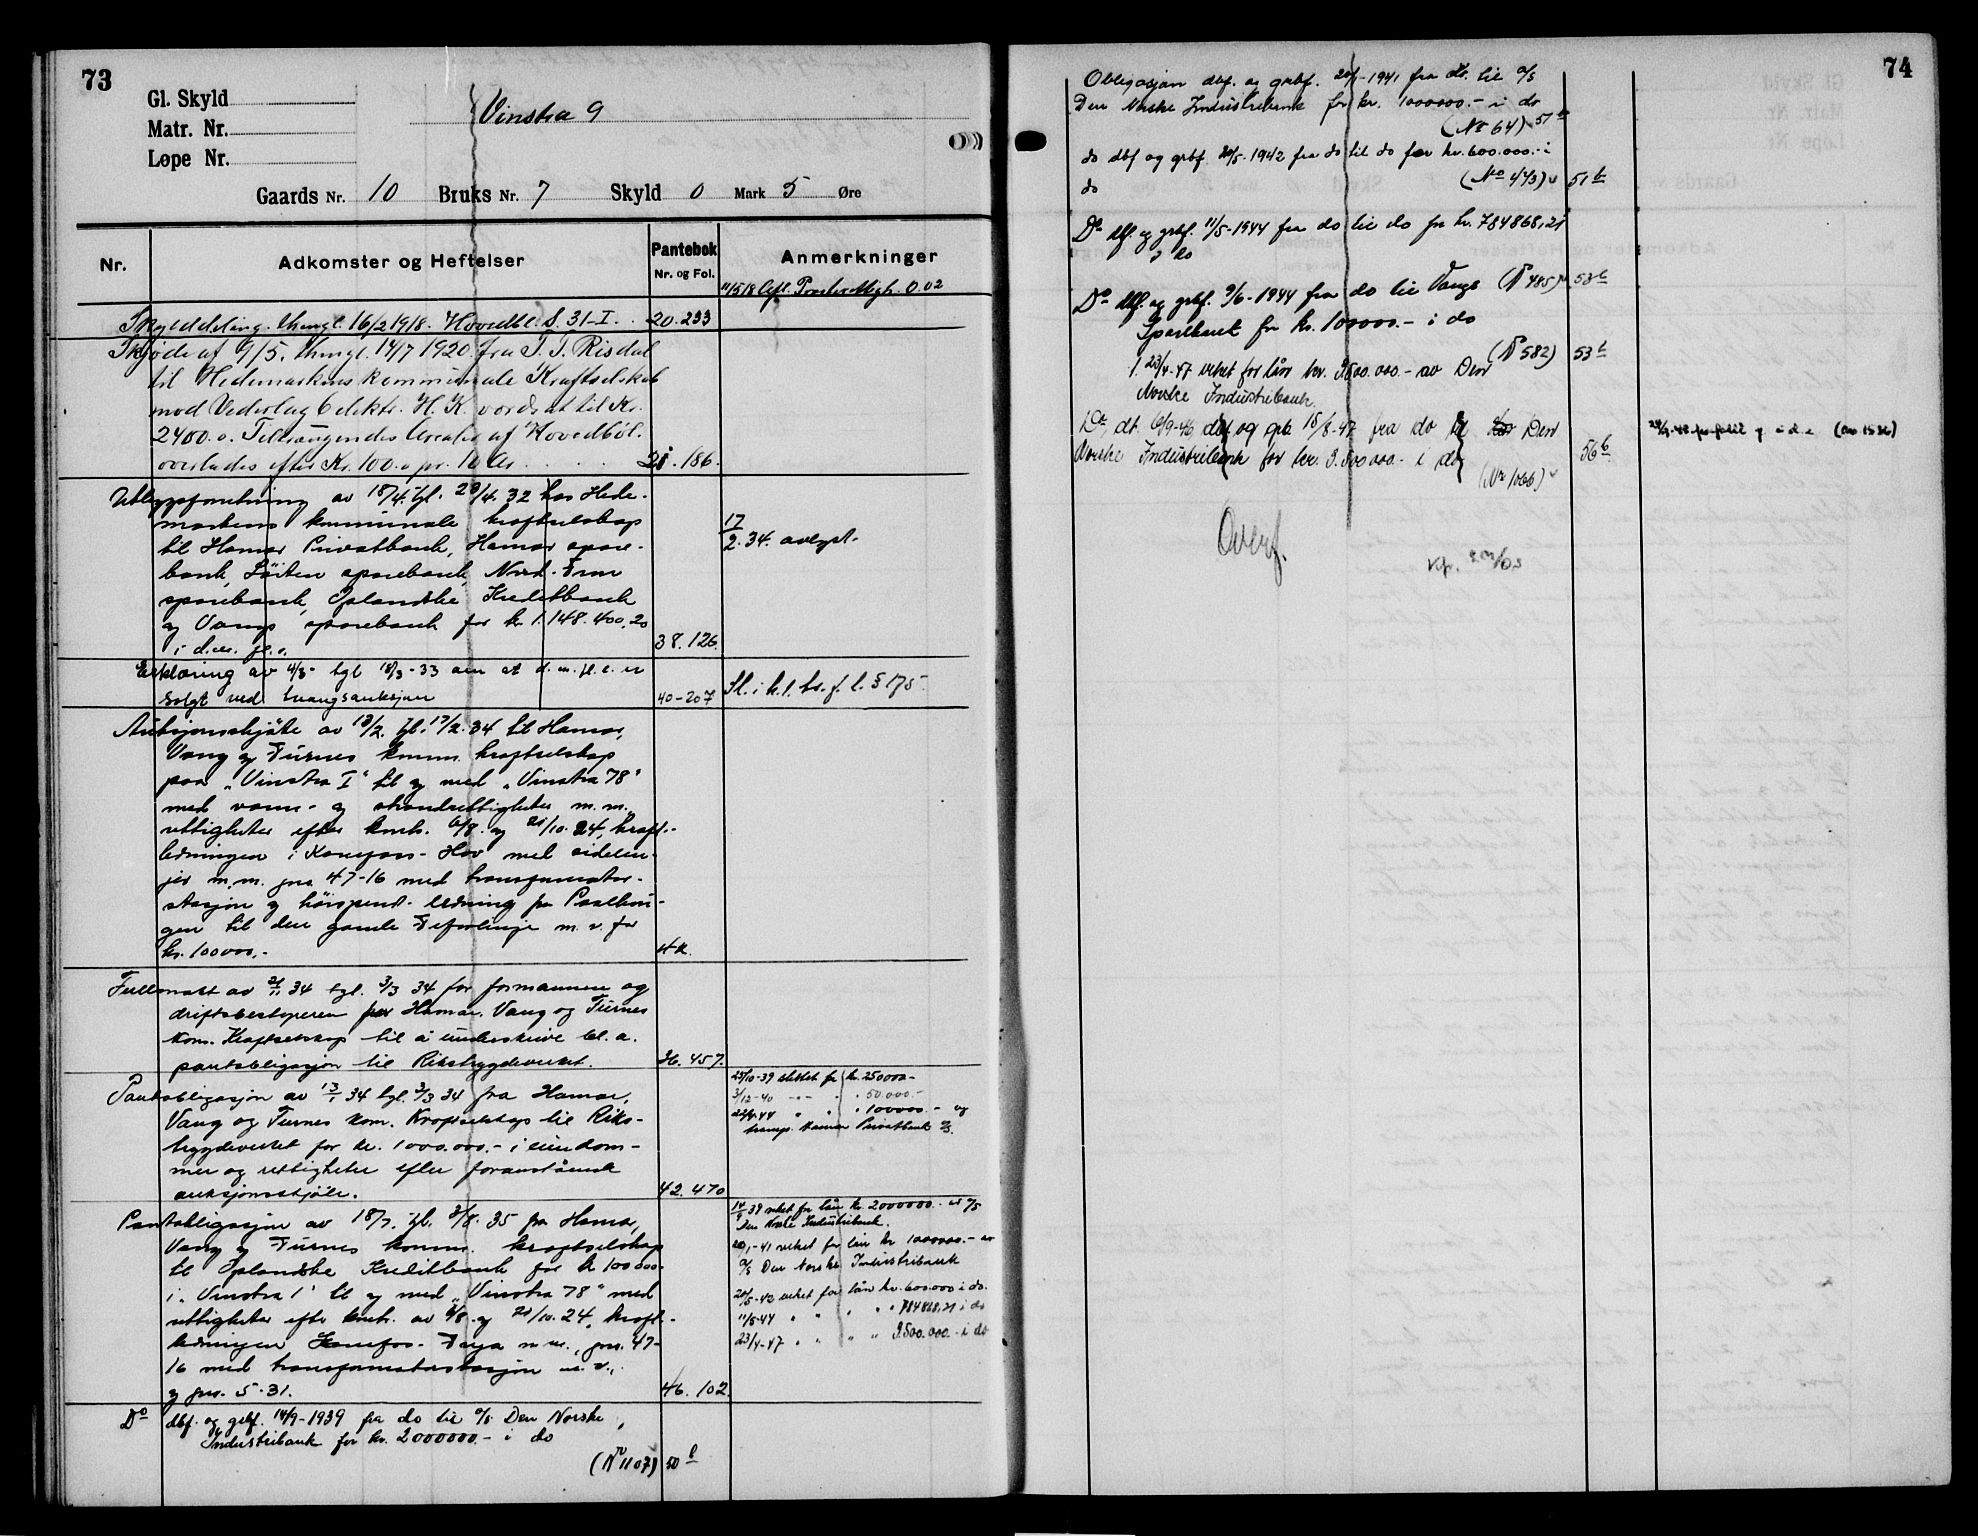 73
Gl. Skyld
Matr. Nr.
Løpe Nr.
Vinstra 9
Gaards Nr. 10 Bruks Nr. 7 Skyld 0 Mark 5 Øre
Nr. Adkomster og Heftelser Pantebok Nr. og Fol. Anmerkninger
11/5 18 0.02
Skylddeling. thingl. 16/2 1918. Hovedbl. S. 31-I. 20.233
Skjøde af 9/5. thingl. 14/7 1920. fra T. T. Risdal
til Hedemarkens kommunale Kraftselskab
mod Vederlag 6 elektr. H. K. vordsat til Kr.
2400.0. Tiltrængendes Arealer af Hovedböl.
overlades efter Kr. 100.0 pr. 10 Ar. 21.186.
Utleggsforretning av 18/4. tgl. 28/4. 32 hos Hede-
markens kommunale kraftselskap
til Hamar Privatbank, Hamar spare-
bank, Løiten sparebank, Nord-Fron
sparebank, Oplandske Kreditbank
og Vangs sparebank for kr. 1.148.400,20
i d.m. fl.e. 38.126.
17/2.34. avlyst.
Erklæring av 4/3- tgl 18/3-33 om at d. m. fl. e. er
solgt ved tvangsauksjon 40-207
Sl. i h. t. tv. f. l. § 175.
Auksjonsskjöte av 13/2. tgl. 17/2. 34 til Hamar,
Vang og Furnes komm. kraftselskap
paa „Vinstra I" til og med „Vinstra 78"
med vann- og strandrettigheter m. m.,
rettigheter efter kontr. 6/8. og 21/10. 24, kraft-
ledningen i Kaneforss - Hov med sidelin-
jer m.m. gnr. 47-16 med transformator-
stasjon og höispent- ledning fra Paalhau-
gen til den gamle Eeforlinje m. v. for
kr. 100000.-
Fullmakt av 21/11 34 tgl. 3/3 34 for formannen og
driftsbestyreren for Hamar, Vang og Furnes
kom. Kraftselskap til å underskrive bl. a.
pantobligasjon til Rikstrygdeverket. 36. 457.
Pantobligasjon av 13/1 34 tgl. 3/3 34 fra Hamar,
Vang og Furnes kom. Kraftselskap til Riks-
trygdeverket for kr. 1.000.000.- i eiendom-
mer og rettigheter efter foranstående
auksjonsskjöte. 42. 470
25/10-39 slettet for kr. 250000-
3/12-40 -"- " " 50.000.-
" " " 100000.- og
transp. Hamar Privatbank A/S.
Pantobligasjon av 18/7. tgl. 3/8. 35 fra Hamar,
Vang og Furnes komm. kraftselskap
til Oplandske Kreditbank for kr 100000-
i „Vinstra 1" til og med „Vinstra 78" med
rettigheter efter kontr. av 6/8. og 21/10. 24, kraft-
ledningen Kanefos - Faga m m., gnr. 47-
16 med transformatorstasjon m. v.,
og gnr. 5-31. 46. 102.
14/9 39 veket for lån kr. 2000000.- til A/S
Den Norske Industribank.
20/1-41 veket for lån kr 1000000.- av
A/S Den Norske Industribank
20/5-42 veket for lån kr. 600.000 i do.
11/5-44 " " " " 784868,21 i do
23/4-47 " " " " 3.500.000.- i do
Do dbf. og grbf. 14/9-1939 fra do til A/S Den Norske
Industribank for kr. 2000000.- i do
(No 1107) 50 b
74
Obligasjon dbf. og grbf. 20/1-1941 fra do. til A/S
Den Norske Industribank for kr. 1000000.- i do
(No 64) 51 b
do dbf og grbf. 20/5-1942 fra do til do for kr. 600.000.- i
do (No 473) 51 b
Do dbf. og grbf. 11/5-1944 fra do til do for kr. 784868,21
i do
(No 485) 53 b
Do dbf. og grbf. 9/6-1944 fra do til Vangs
Sparebank for kr. 100000.- i do
(No 582) 53 b
1. 23/4-47 veket for lån kr. 3.500.000.- av Den
Norske Industribank.
Do, dt. 6/9-46 dbf og grb 18/8-47 fra do til Den
Norske Industribank for kr. 3.500.000.- i do
(Nr 1066) 56 b
Overf.